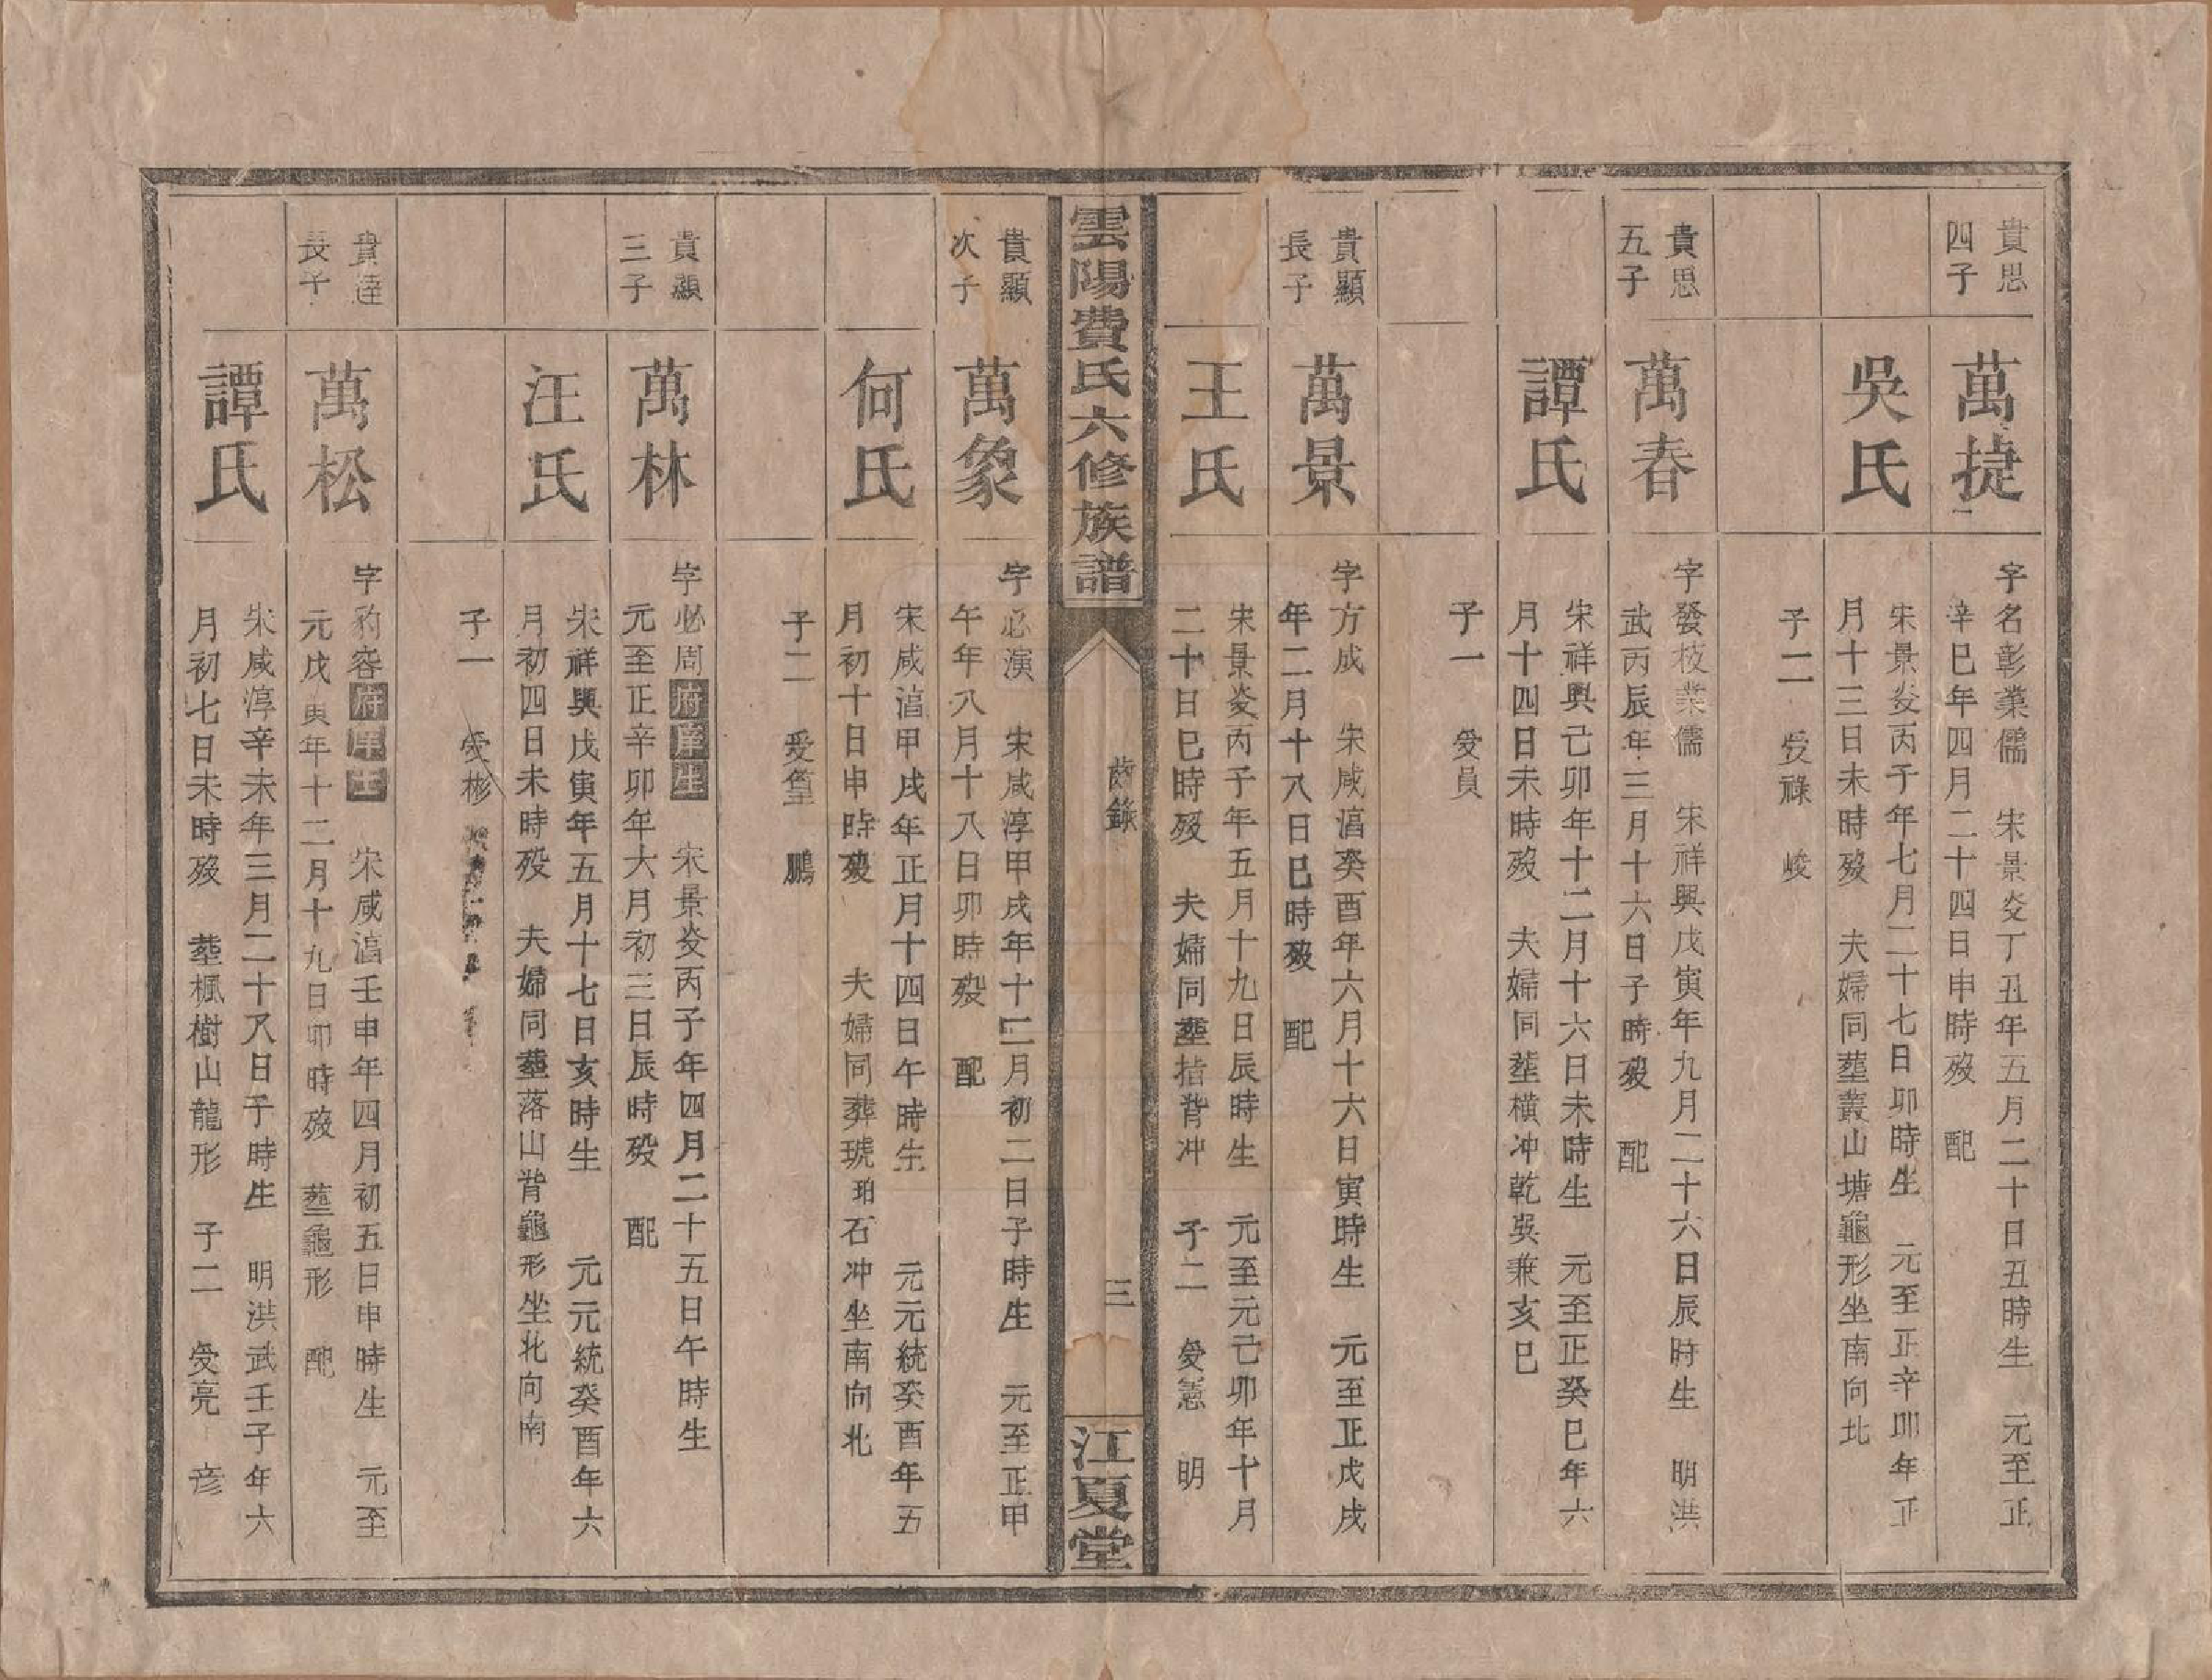 貴思
四子
萬捷
字名彰業儒　宋景炎丁丑年五月二十日丑時生　元至正
辛巳年四月二十四日申時歿　配
吳氏
宋景炎丙子年七月二十七日卯時生　元至正辛卯年正
月十三日未時歿　夫婦同塟叢山塘龜形坐南向北
子二　受祿　峻
貴思
五子
萬春
字發枝業儒　宋祥興戊寅年九月二十六日辰時生　明洪
武丙辰年三月十六日子時歿　配
譚氏
宋祥興己卯年十二月十六日未時生　元至正癸巳年六
月十四日未時歿　夫婦同塟横冲乾吳兼亥巳
子一　受員
貴顯
長子
萬景
字方成　宋咸湻癸酉年六月十六日寅時生　元至正戊戌
年二月十八日巳時歿　配
王氏
宋景炎丙子年五月十九日辰時生　元至元己卯年十月
二十日巳時歿　夫婦同塟背冲　子二　受憲　明
雲陽費氏六修族譜
齒錄
三
江夏堂
貴顯
次子
萬象
字必演　宋咸淳甲戌年十二月初二日子時生　元至正甲
午年八月十八日卯時歿　配
何氏
宋咸湻甲戌年正月十四日午時生　元元統癸酉年五
月初十日申時歿　夫婦同葬琥珀石冲坐南向北
子二　受篁　鵬
貴顯
三子
萬林
字必周府庠生　宋景炎丙子年四月二十五日午時生
元至正辛卯年六月初三日辰時歿　配
汪氏
宋祥興戊寅年五月十七日亥時生　元元統癸酉年六
月初四日未時歿　夫婦同塟落山背龜形坐北向南
子一　受彬
貴達
長子
萬松
字豹容府庠生　宋咸湻壬申年四月初五日申時生　元至
元戊寅年十二月十九日卯時歿　塟龜形　配
譚氏
宋咸淳辛未年三月二十八日子時生　明洪武壬子年六
月初七日未時歿　塟楓樹山龍形　子二　受亮　彦